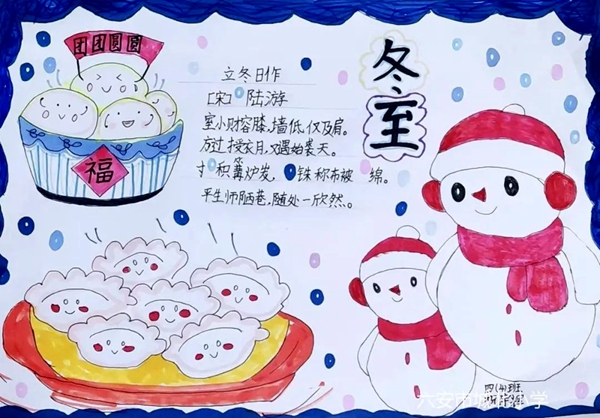 团团圆圆
福
冬至
立冬日作
[宋] 陆游
室小财容膝,墙低仅及肩。
方过授衣月,又遇始裘天。
寸积篝炉炭,铢称布被绵。
平生师陋巷,随处一欣然。
四(4)班